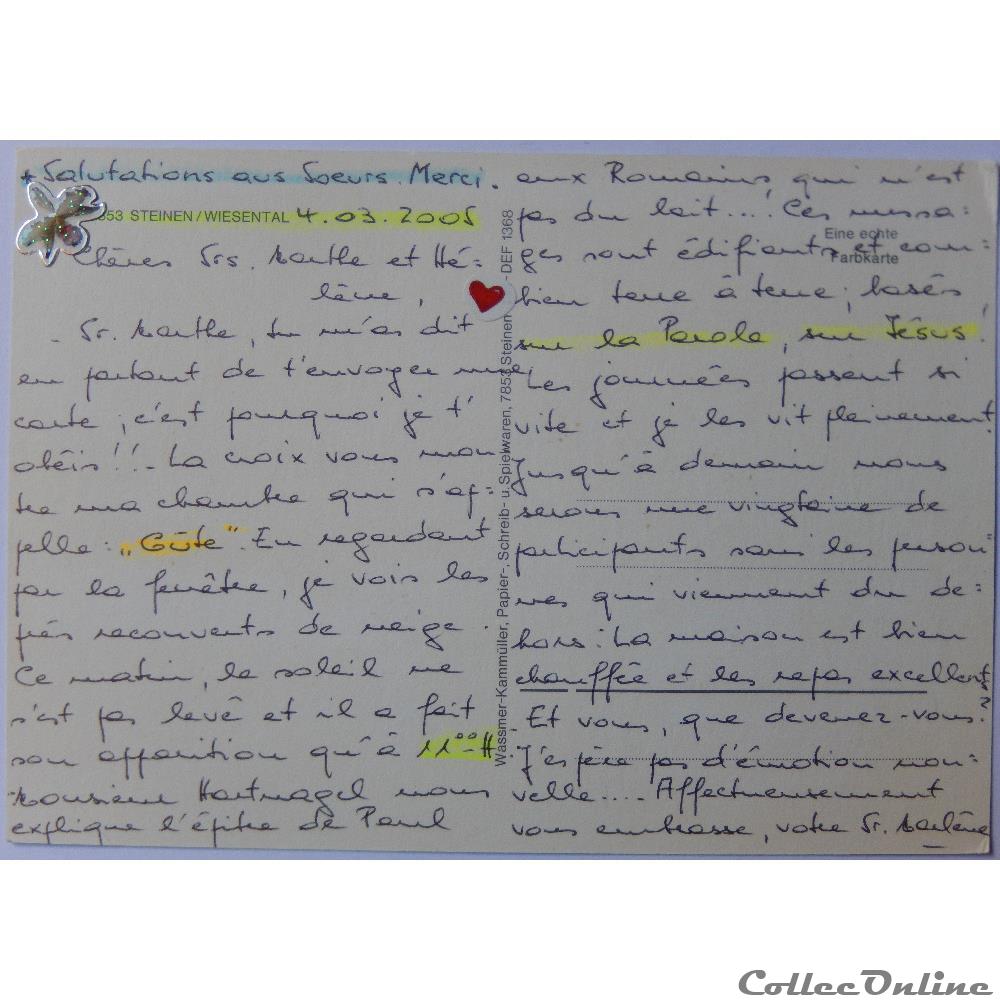 * Salutations aus Soeurs. Merci.
7853 STEINEN/WIESENTAL 4.03.2005
Chères Srs. Marthe et Hé=
lène,
- Sr. Marthe, tu m'as dit
en partant de t'envoyer une
carte ; c'est pourquoi je t'
obéis !! - La croix vous mon
tre ma chambre qui s'ap=
pelle : „Güte". En regardant
par la fenêtre, je vois les
prés recouverts de neige.
Ce matin, le soleil ne
s'est pas levé et il a fait
son apparition qu'à 11⁰⁰ H.
Monsieur Hartnagel nous
explique l'épître de Paul
aux Romains, qui n'est
pas du lait....! Ces messa=
ges sont édifiants et com=
bien terre à terre ; basés
sur la Parole, sur Jésus !
Les journées passent si
vite et je les vit pleinement.
Jusqu'à demain nous
serons une vingtaine de
participants sans les person=
nes qui viennent du de=
hors. La maison est bien
chauffée et les repas excellents
- Et vous, que devenez-vous ?
J'espère pas d'émotion nou=
velle.... Affectueusement
vous embrasse, votre Sr. Marlène
Eine echte
Farbkarte
Wassmer-Kammüller, Papier-, Schreib- u. Spielwaren, 7853 Steinen - DEF 1368
CollecOnline